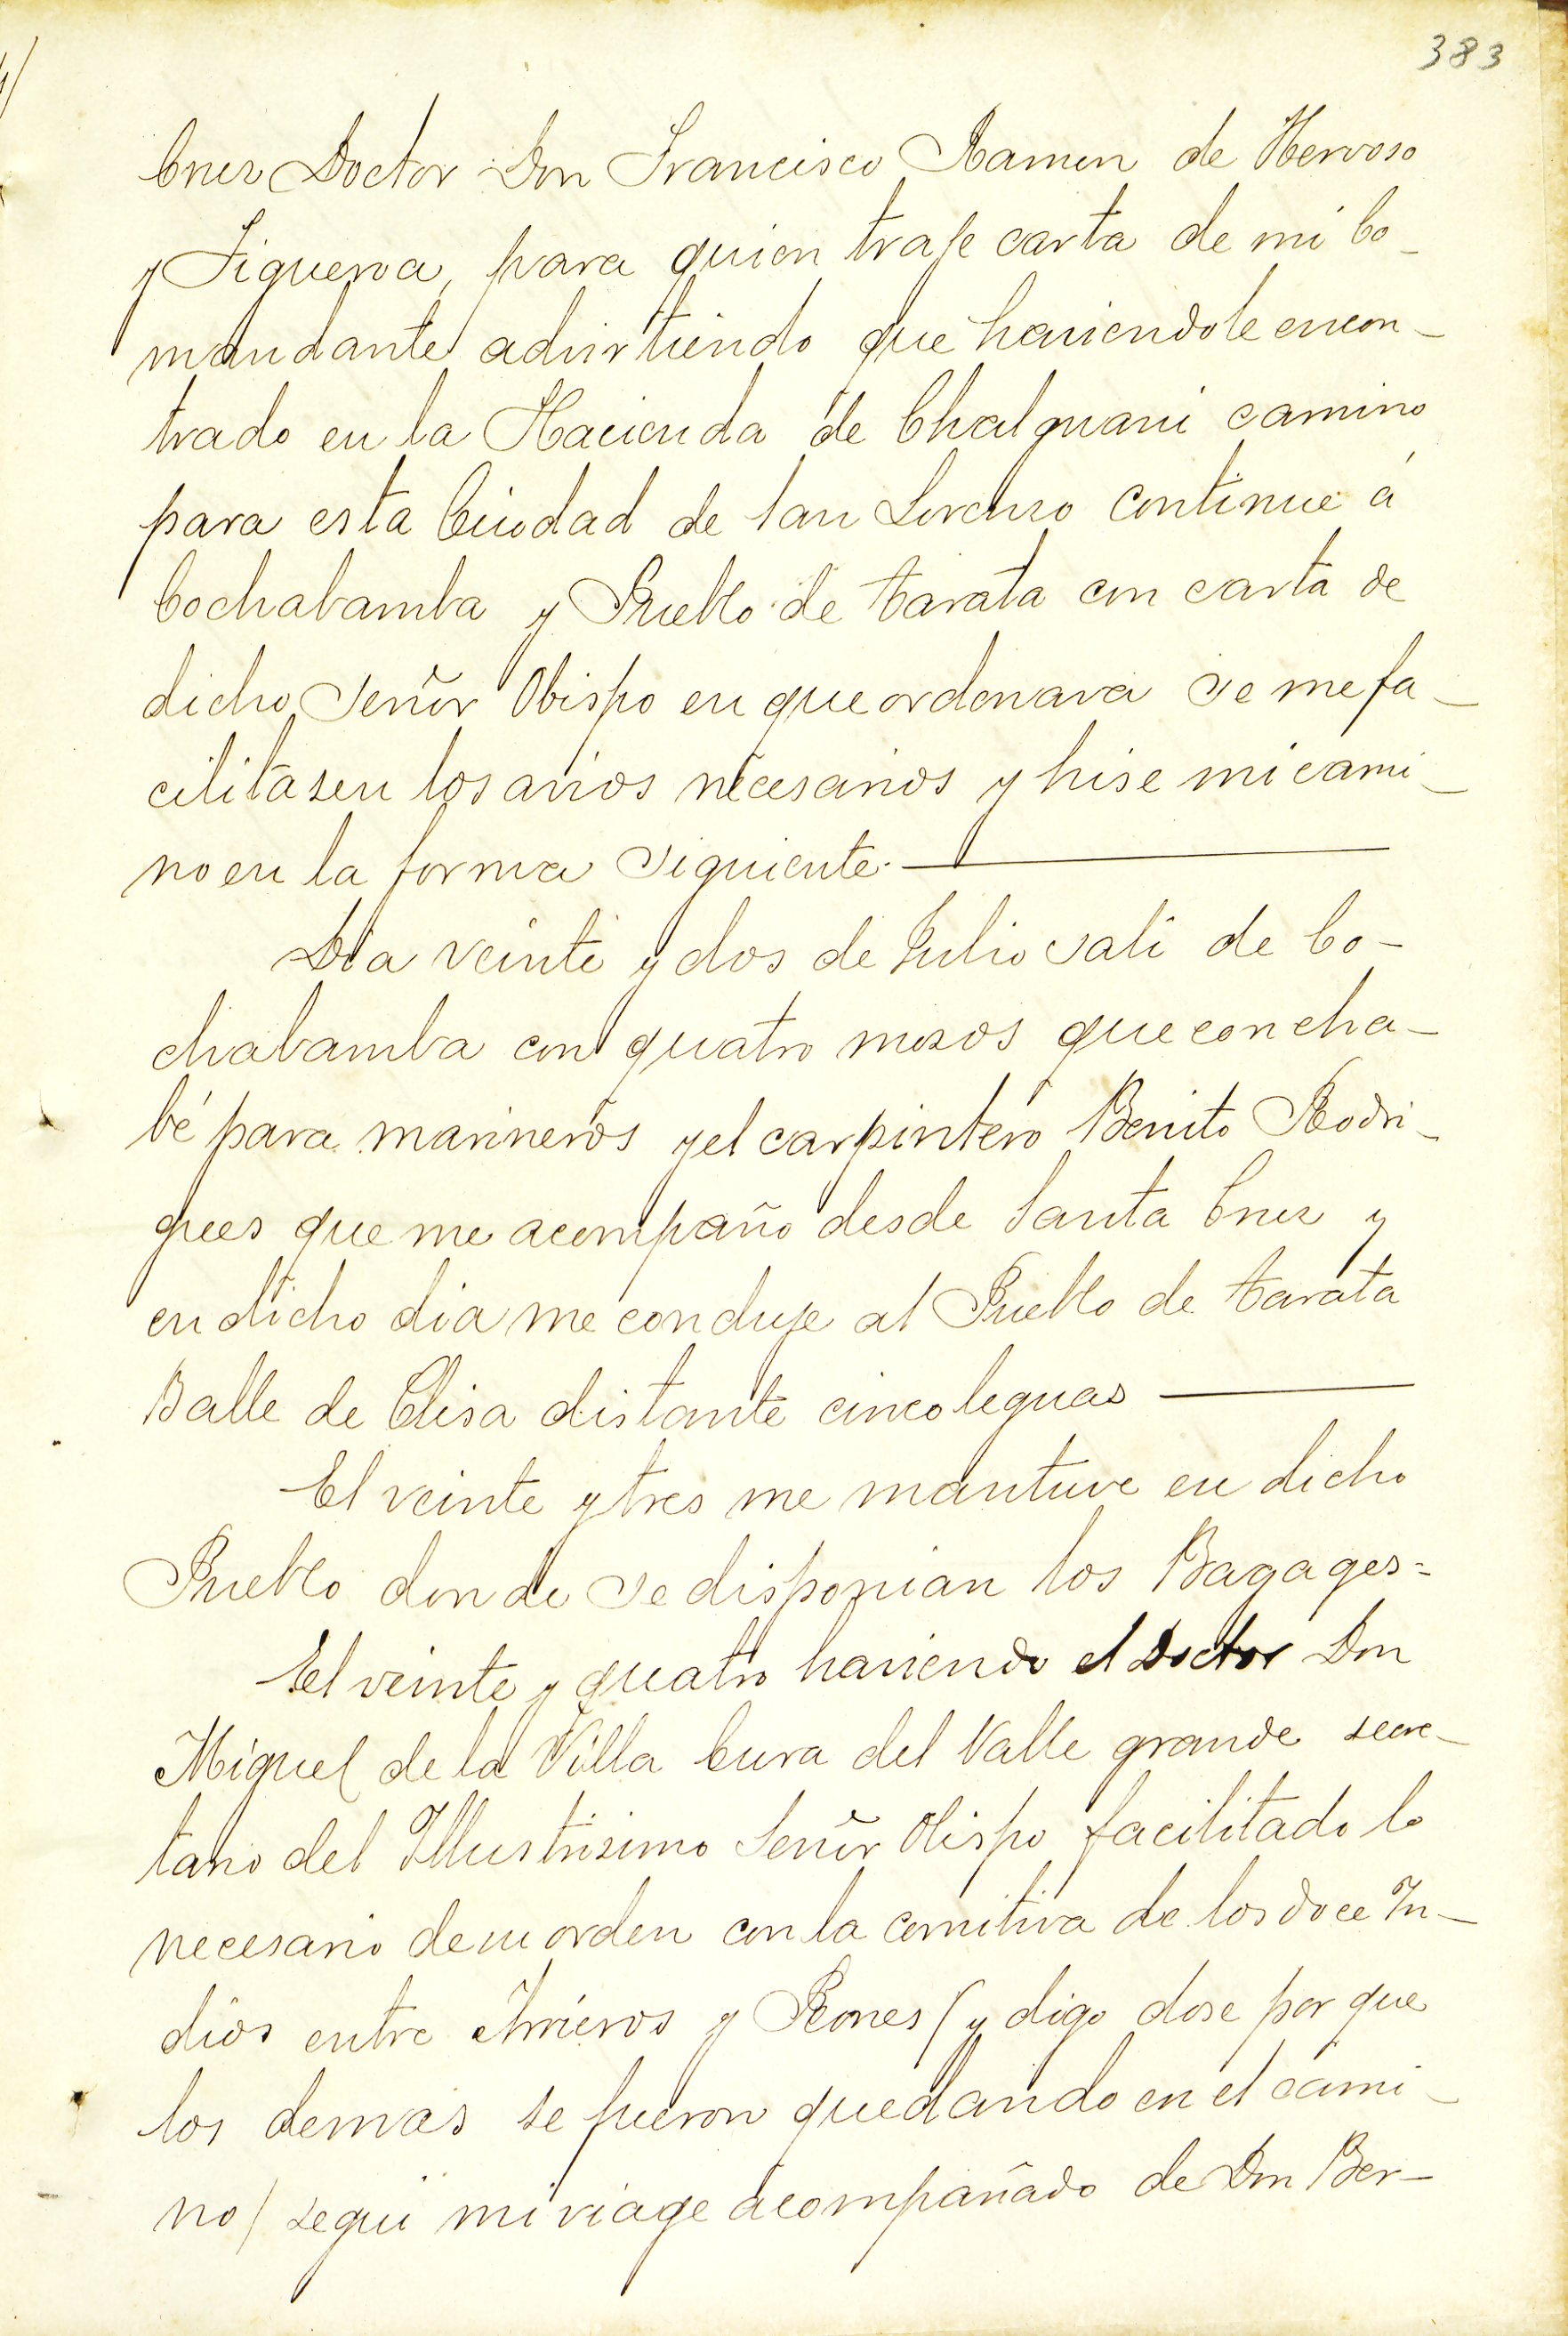 383
Cruz Doctor Don Francisco Ramon de Hervoso
y Figueroa, para quien traje carta de mi Co-
mandante advirtiendo que haviendole encon-
trado en la Hacienda de Chalguani camino
para esta Ciudad de San Lorenso continue á
Cochabamba y Pueblo de Tarata con carta de
dicho Señor Obispo en que ordenava se me fa-
cilitasen los avios necesarios y hise mi cami-
no en la forma siguiente.
Dia veinte y dos de Julio sali de Co-
chabamba con quatro mosos que concha-
bé para marineros y el carpintero Benito Rodri-
gues que me acompaño desde Santa Cruz y
en dicho dia me conduje al Pueblo de Tarata
Balle de Clisa distante cinco leguas
El veinte y tres me mantuve en dicho
Pueblo donde se disponian los Bagages=
El veinte y quatro haviendo el Doctor Don
Miguel de la Villa Cura del Valle grande secre-
tario del Illustrisimo Señor Obispo facilitado lo
necesario de su orden con la comitiva de los doce In-
dios entre Arrieros y Peones (y digo dose por que
los demas se fueron quedando en el cami-
no) segui mi viage acompañado de Don Ber-